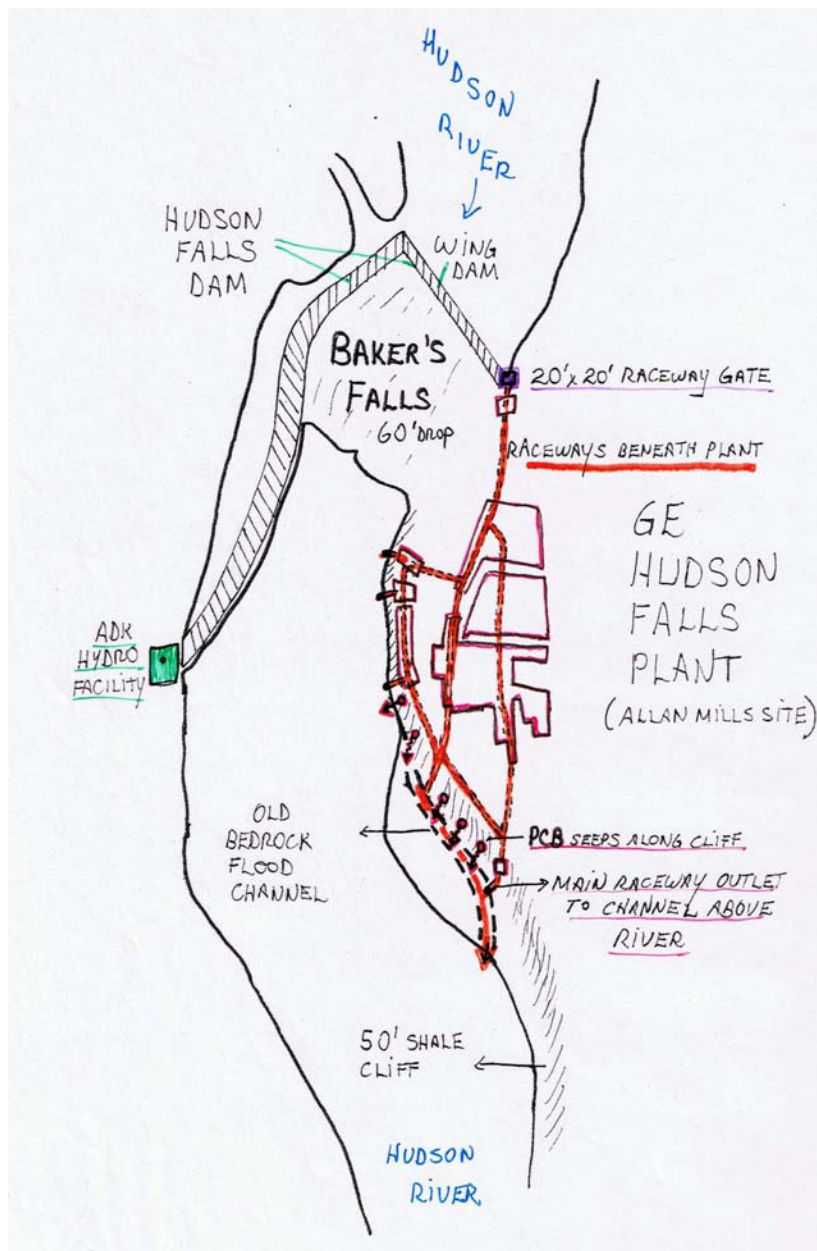 HUDSON
RIVER
HUDSON
FALLS
DAM
WING
DAM
BAKER'S
FALLS
60' DROP
20' x 20' RACEWAY GATE
RACEWAYS BENEATH PLANT
GE
HUDSON
FALLS
PLANT
(ALLAN MILLS SITE)
ADK
HYDRO
FACILITY
OLD
BEDROCK
FLOOD
CHANNEL
PCB SEEPS ALONG CLIFF
MAIN RACEWAY OUTLET
TO CHANNEL ABOVE
RIVER
50' SHALE
CLIFF
HUDSON
RIVER